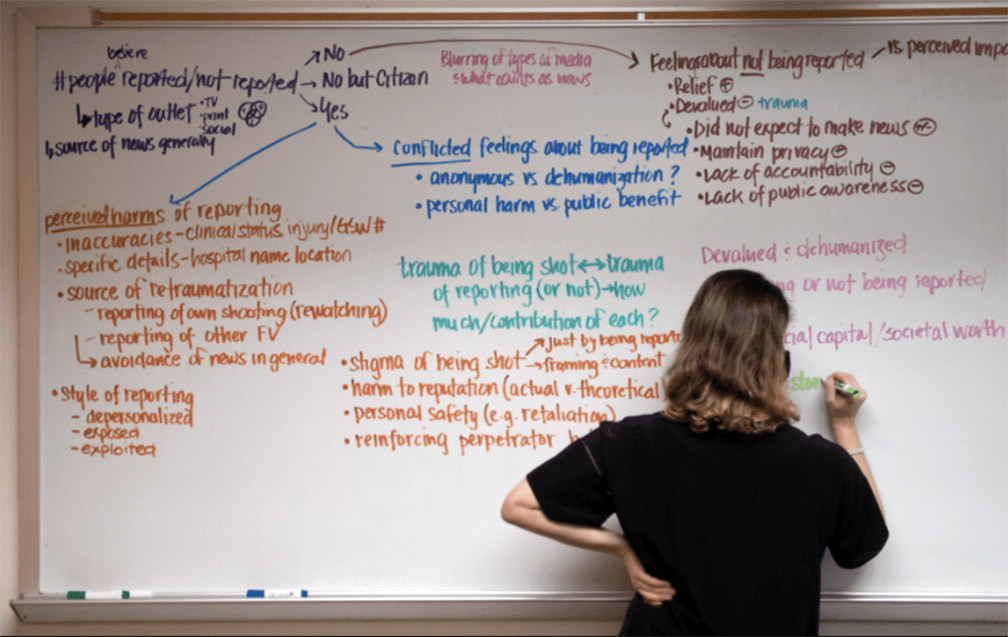 believe
#people reported/not reported
No
No but Citizen
Yes
type of outlet
• TV
• print
social
source of news generally
Blurring of types of media
& what counts as news
Feelings about not being reported
vs perceived
• Relief +
• Devalued - trauma
• Did not expect to make news +/-
• Maintain privacy
• Lack of accountability -
• Lack of public awareness -
Conflicted feelings about being reported
• anonymous vs dehumanization?
• personal harm vs. public benefit
perceived harms of reporting
• inaccuracies - clinical status, injury/GSW #
• specific details - hospital name location
• source of retraumatization
- reporting of own shooting (rewatching)
- reporting of other FV
avoidance of news in general
• Style of reporting
- depersonalized
- exposed
- exploited
trauma of being shot ↔ trauma
of reporting (or not) → how
much/contribution of each?
• stigma of being shot
Just by being
framing & content
• harm to reputation (actual v. theoretical)
• personal safety (e.g. retaliation)
• reinforcing perpetrator
Devalued & dehumanized
or not being reported
capital/societal worth